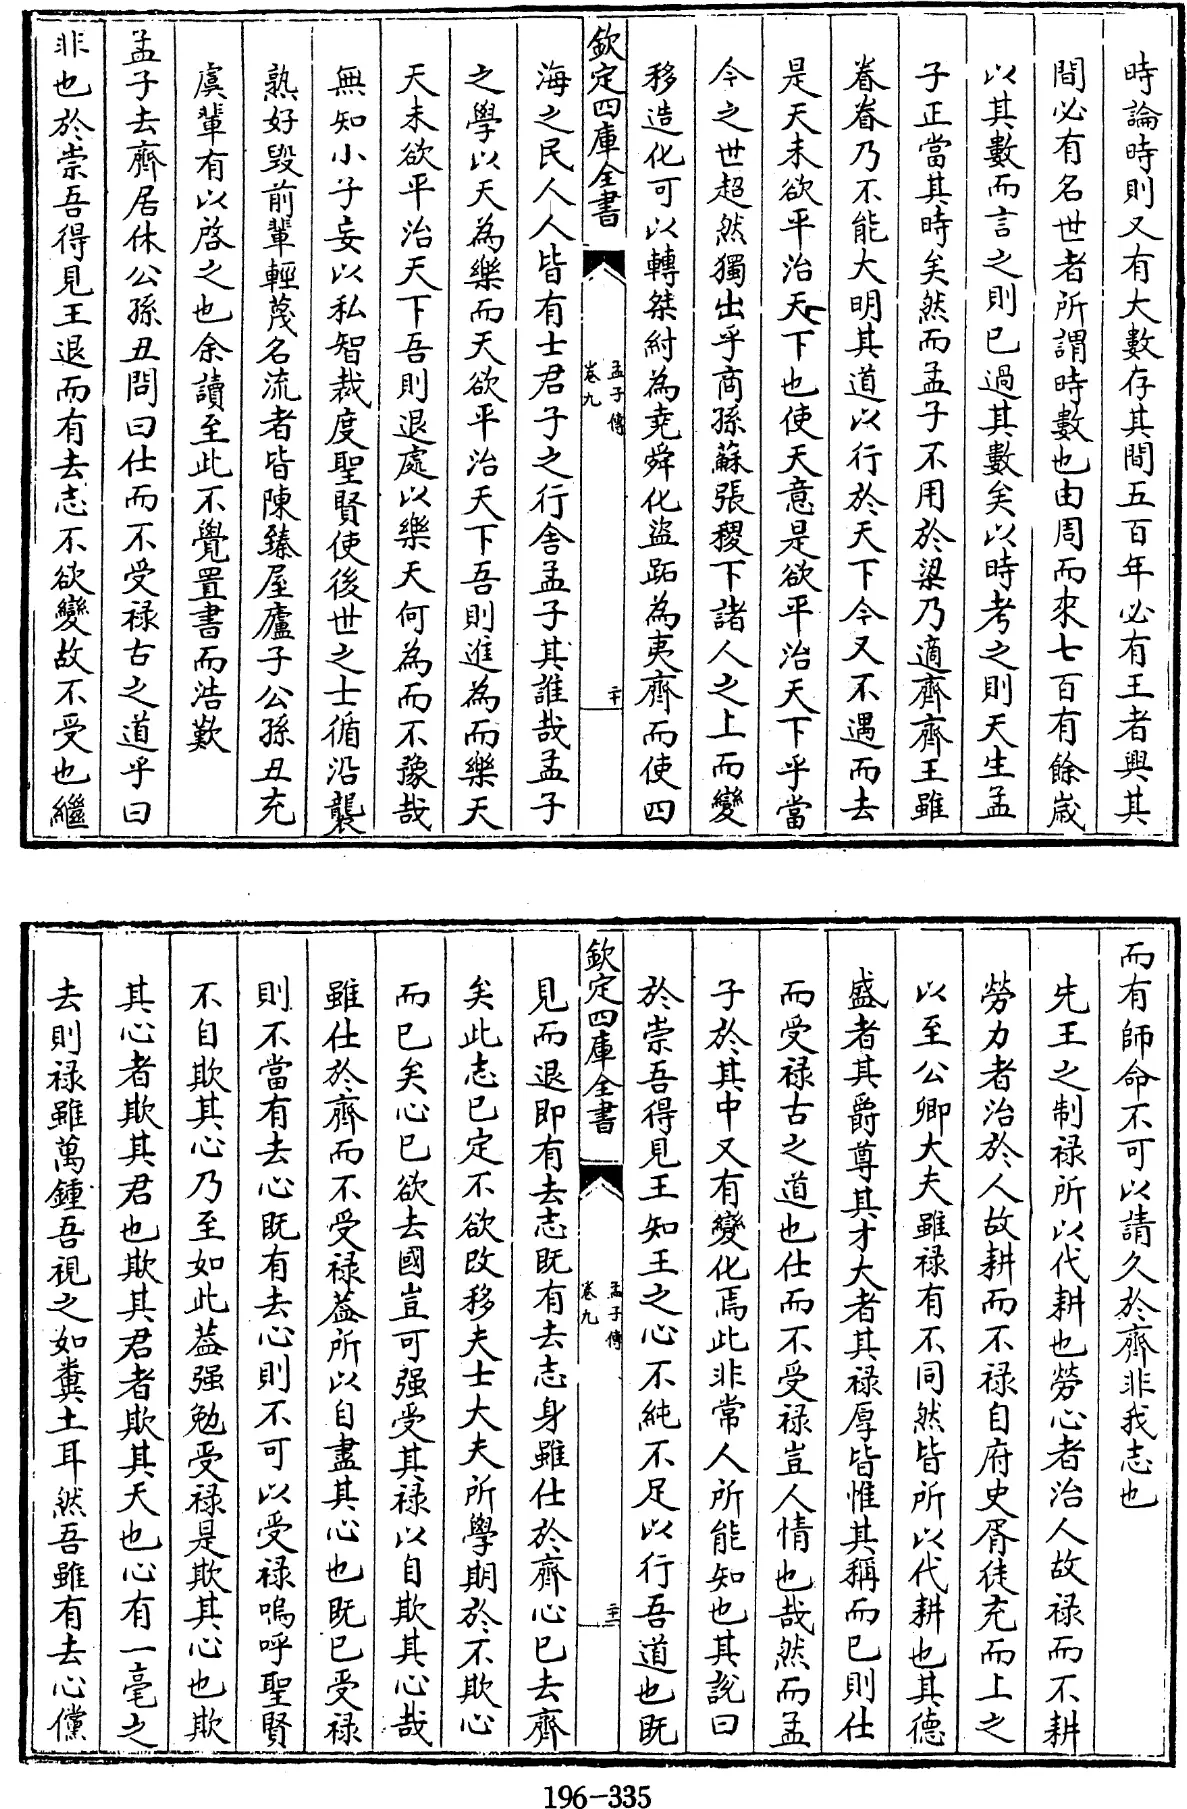 時論時則又有大數存其間五百年必有王者興其
間必有名世者所謂時數也由周而來七百有餘歳
以其數而言之則已過其數矣以時考之則天生孟
子正當其時矣然而孟子不用於梁乃適齊齊王雖
眷眷乃不能大明其道以行於天下今又不遇而去
是天未欲平治天下也使天意是欲平治天下乎當
今之世超然獨出乎商孫蘇張稷下諸人之上而變
移造化可以轉桀紂為堯舜化盜跖為夷齊而使四
欽定四庫全書
孟子傳
卷九
二十
海之民人人皆有士君子之行舍孟子其誰哉孟子
之學以天為樂而天欲平治天下吾則進為而樂天
天未欲平治天下吾則退處以樂天何為而不豫哉
無知小子妄以私智裁度聖賢使後世之士循沿襲
熟好毀前輩輕蔑名流者皆陳臻屋廬子公孫丑充
虞輩有以啓之也余讀至此不覺置書而浩歎
孟子去齊居休公孫丑問曰仕而不受禄古之道乎曰
非也於崇吾得見王退而有去志不欲變故不受也繼
而有師命不可以請久於齊非我志也
先王之制禄所以代耕也勞心者治人故禄而不耕
勞力者治於人故耕而不禄自府史胥徒充而上之
以至公卿大夫雖禄有不同然皆所以代耕也其德
盛者其爵尊其才大者其禄厚皆惟其稱而已則仕
而受禄古之道也仕而不受禄豈人情也哉然而孟
子於其中又有變化焉此非常人所能知也其說曰
於崇吾得見王知王之心不純不足以行吾道也既
欽定四庫全書
孟子傳
卷九
二十一
見而退即有去志既有去志身雖仕於齊心已去齊
矣此志已定不欲改移夫士大夫所學期於不欺心
而已矣心已欲去國豈可强受其禄以自欺其心哉
雖仕於齊而不受禄葢所以自盡其心也既已受禄
則不當有去心既有去心則不可以受禄嗚呼聖賢
不自欺其心乃至如此葢强勉受禄是欺其心也欺
其心者欺其君也欺其君者欺其天也心有一毫之
去則禄雖萬鍾吾視之如糞土耳然吾雖有去心儻
196-335